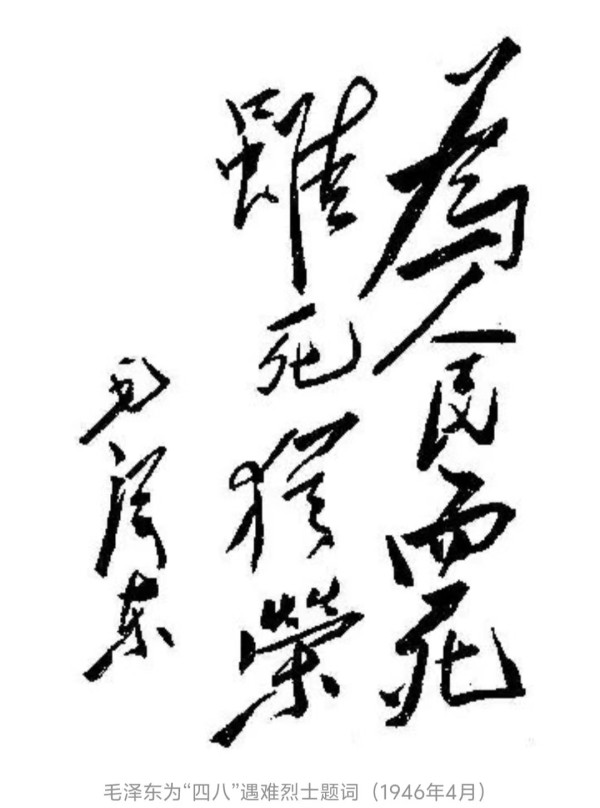 為人民而死
雖死猶榮
毛泽东
毛泽东为“四八”遇难烈士题词（1946年4月）